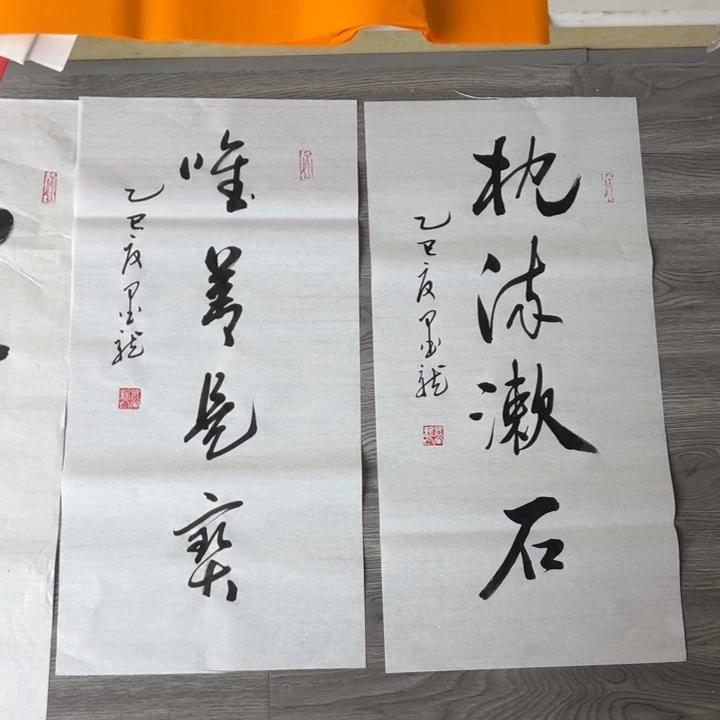 枕流漱石
乙巳夏墨龙
唯善是寶
乙巳夏墨龙